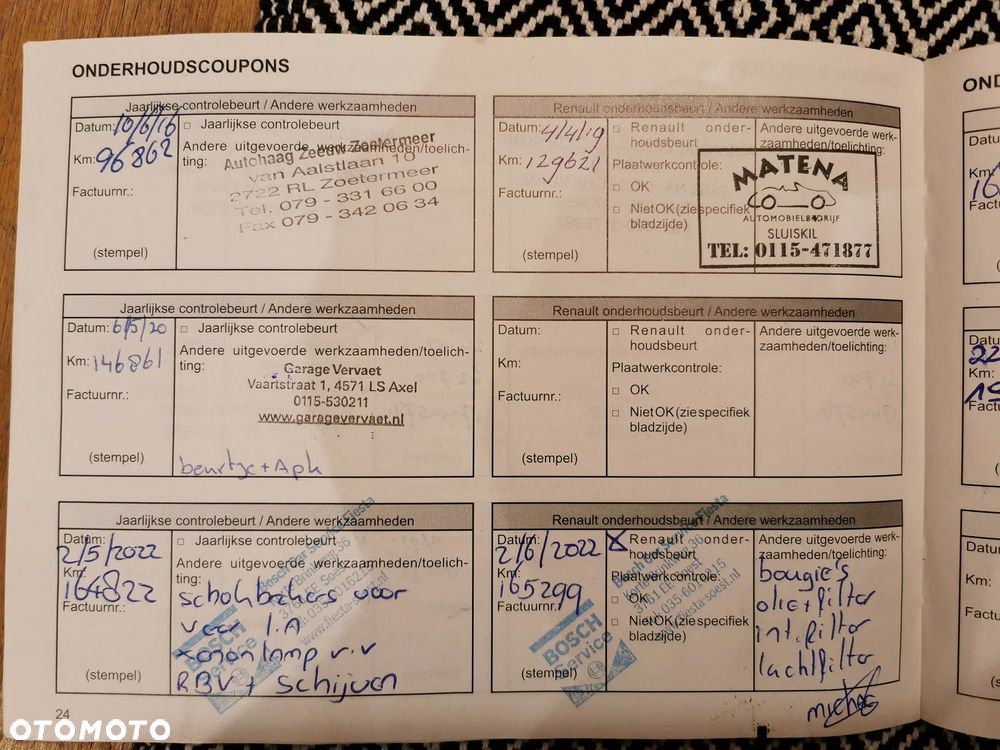 ONDERHOUDSCOUPONS
Jaarlijkse controlebeurt / Andere werkzaamheden
Datum: 10/6/16
□ Jaarlijkse controlebeurt
Km: 96862
Andere uitgevoerde werkzaamheden/toelich-
ting:
Autohaag Zeeuw Zoetermeer
van Aalstlaan 10
2722 RL Zoetermeer
Tel. 079 - 331 66 00
Fax 079 - 342 06 34
Factuurnr.:
(stempel)
Renault onderhoudsbeurt / Andere werkzaamheden
Datum: 4/4/19
Km: 129621
Factuurnr.:
(stempel)
□ Renault onder-
houdsbeurt
Plaatwerkcontrole:
□ OK
□ Niet OK (zie specifiek
bladzijde)
Andere uitgevoerde werk-
zaamheden/toelichting:
MATENA
AUTOMOBIELBEDRIJF
SLUISKIL
TEL: 0115-471877
Jaarlijkse controlebeurt / Andere werkzaamheden
Datum: 6/5/20
□ Jaarlijkse controlebeurt
Km: 146861
Andere uitgevoerde werkzaamheden/toelich-
ting:
Garage Vervaet
Vaartstraat 1, 4571 LS Axel
0115-530211
www.garagevervaet.nl
Factuurnr.:
(stempel)
beurtje + Apk
Renault onderhoudsbeurt / Andere werkzaamheden
Datum:
Km:
Factuurnr.:
(stempel)
□ Renault onder-
houdsbeurt
Plaatwerkcontrole:
□ OK
□ Niet OK (zie specifiek
bladzijde)
Andere uitgevoerde werk-
zaamheden/toelichting:
Jaarlijkse controlebeurt / Andere werkzaamheden
Datum:
2/5/2022
□ Jaarlijkse controlebeurt
Km:
164822
Factuurnr.:
(stempel)
Andere uitgevoerde werkzaamheden/toelich-
ting:
schokbrekers voor
veer l.A
xenon lamp r.v
RBV + schijven
Bosch Car Service Fiesta
3761 EE Soest
Tel: 035-6016215
www.fiesta-soest.nl
BOSCH
Service
Renault onderhoudsbeurt / Andere werkzaamheden
Datum:
2/6/2022
Km:
165299
Factuurnr.:
(stempel)
X Renault onder-
houdsbeurt
Plaatwerkcontrole:
□ OK
□ Niet OK (zie specifiek
bladzijde)
Andere uitgevoerde werk-
zaamheden/toelichting:
bougie's
olie + filter
int. filter
luchtfilter
Bosch Car Service Fiesta
3761 EE Soest
Tel: 035-6016215
www.fiesta-soest.nl
BOSCH
Service
24
OTOMOTO
OND
Km
Factu
Datu
22
Km:
Factu
Datum
Km: